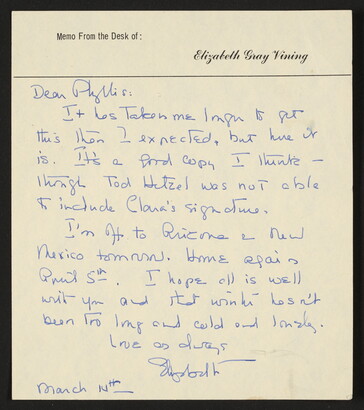 Memo From the Desk of:
Elizabeth Gray Vining
Dear Phyllis:
It has taken me longer to get
this than I expected, but here it
is. It's a good copy I think —
though Tod Hetzel was not able
to include Clara's signature.
I'm off to Arizona & New
Mexico tomorrow. Home again
April 5th. I hope all is well
with you and that winter hasn't
been too long and cold and lonely.
Love as always
Elizabeth
March